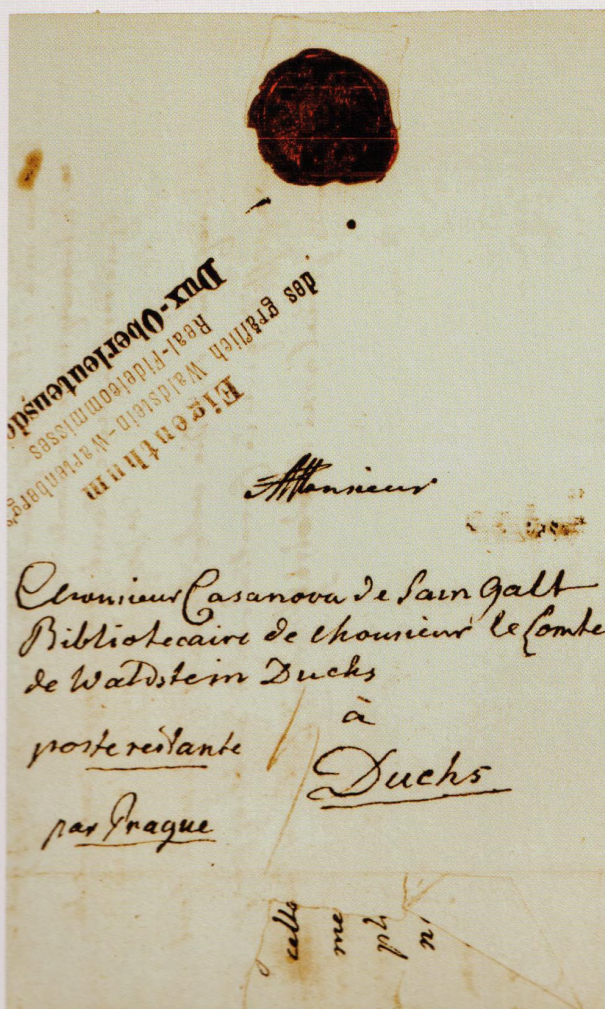 Eigenthum
des gräflich Waldstein-Wartenberg's
Real-Fideicommisses
Dux-Oberleutensdo
Monsieur
Monsieur Casanova de Sain Galt
Bibliotecaire de Monsieur le Comte
de Waldstein Duchs
à
poste restante
Duchs
par Prague
cello
me
ph
n